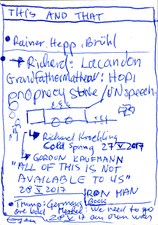 THIS AND THAT
• Rainer Hepp, Brühl
→ Richard: Lacandon
Grandfathermothers: Hopi
Prophecy Stone / UN Speech
→ Richard Kroehling
Cold Spring 27 V 2017
→ GORDON KAUFMANN
"ALL OF THIS IS NOT
AVAILABLE TO US"
28 V 2017
IRON MAN
• Trump: Germans
are bad
Merkel: we need to go
our own ways